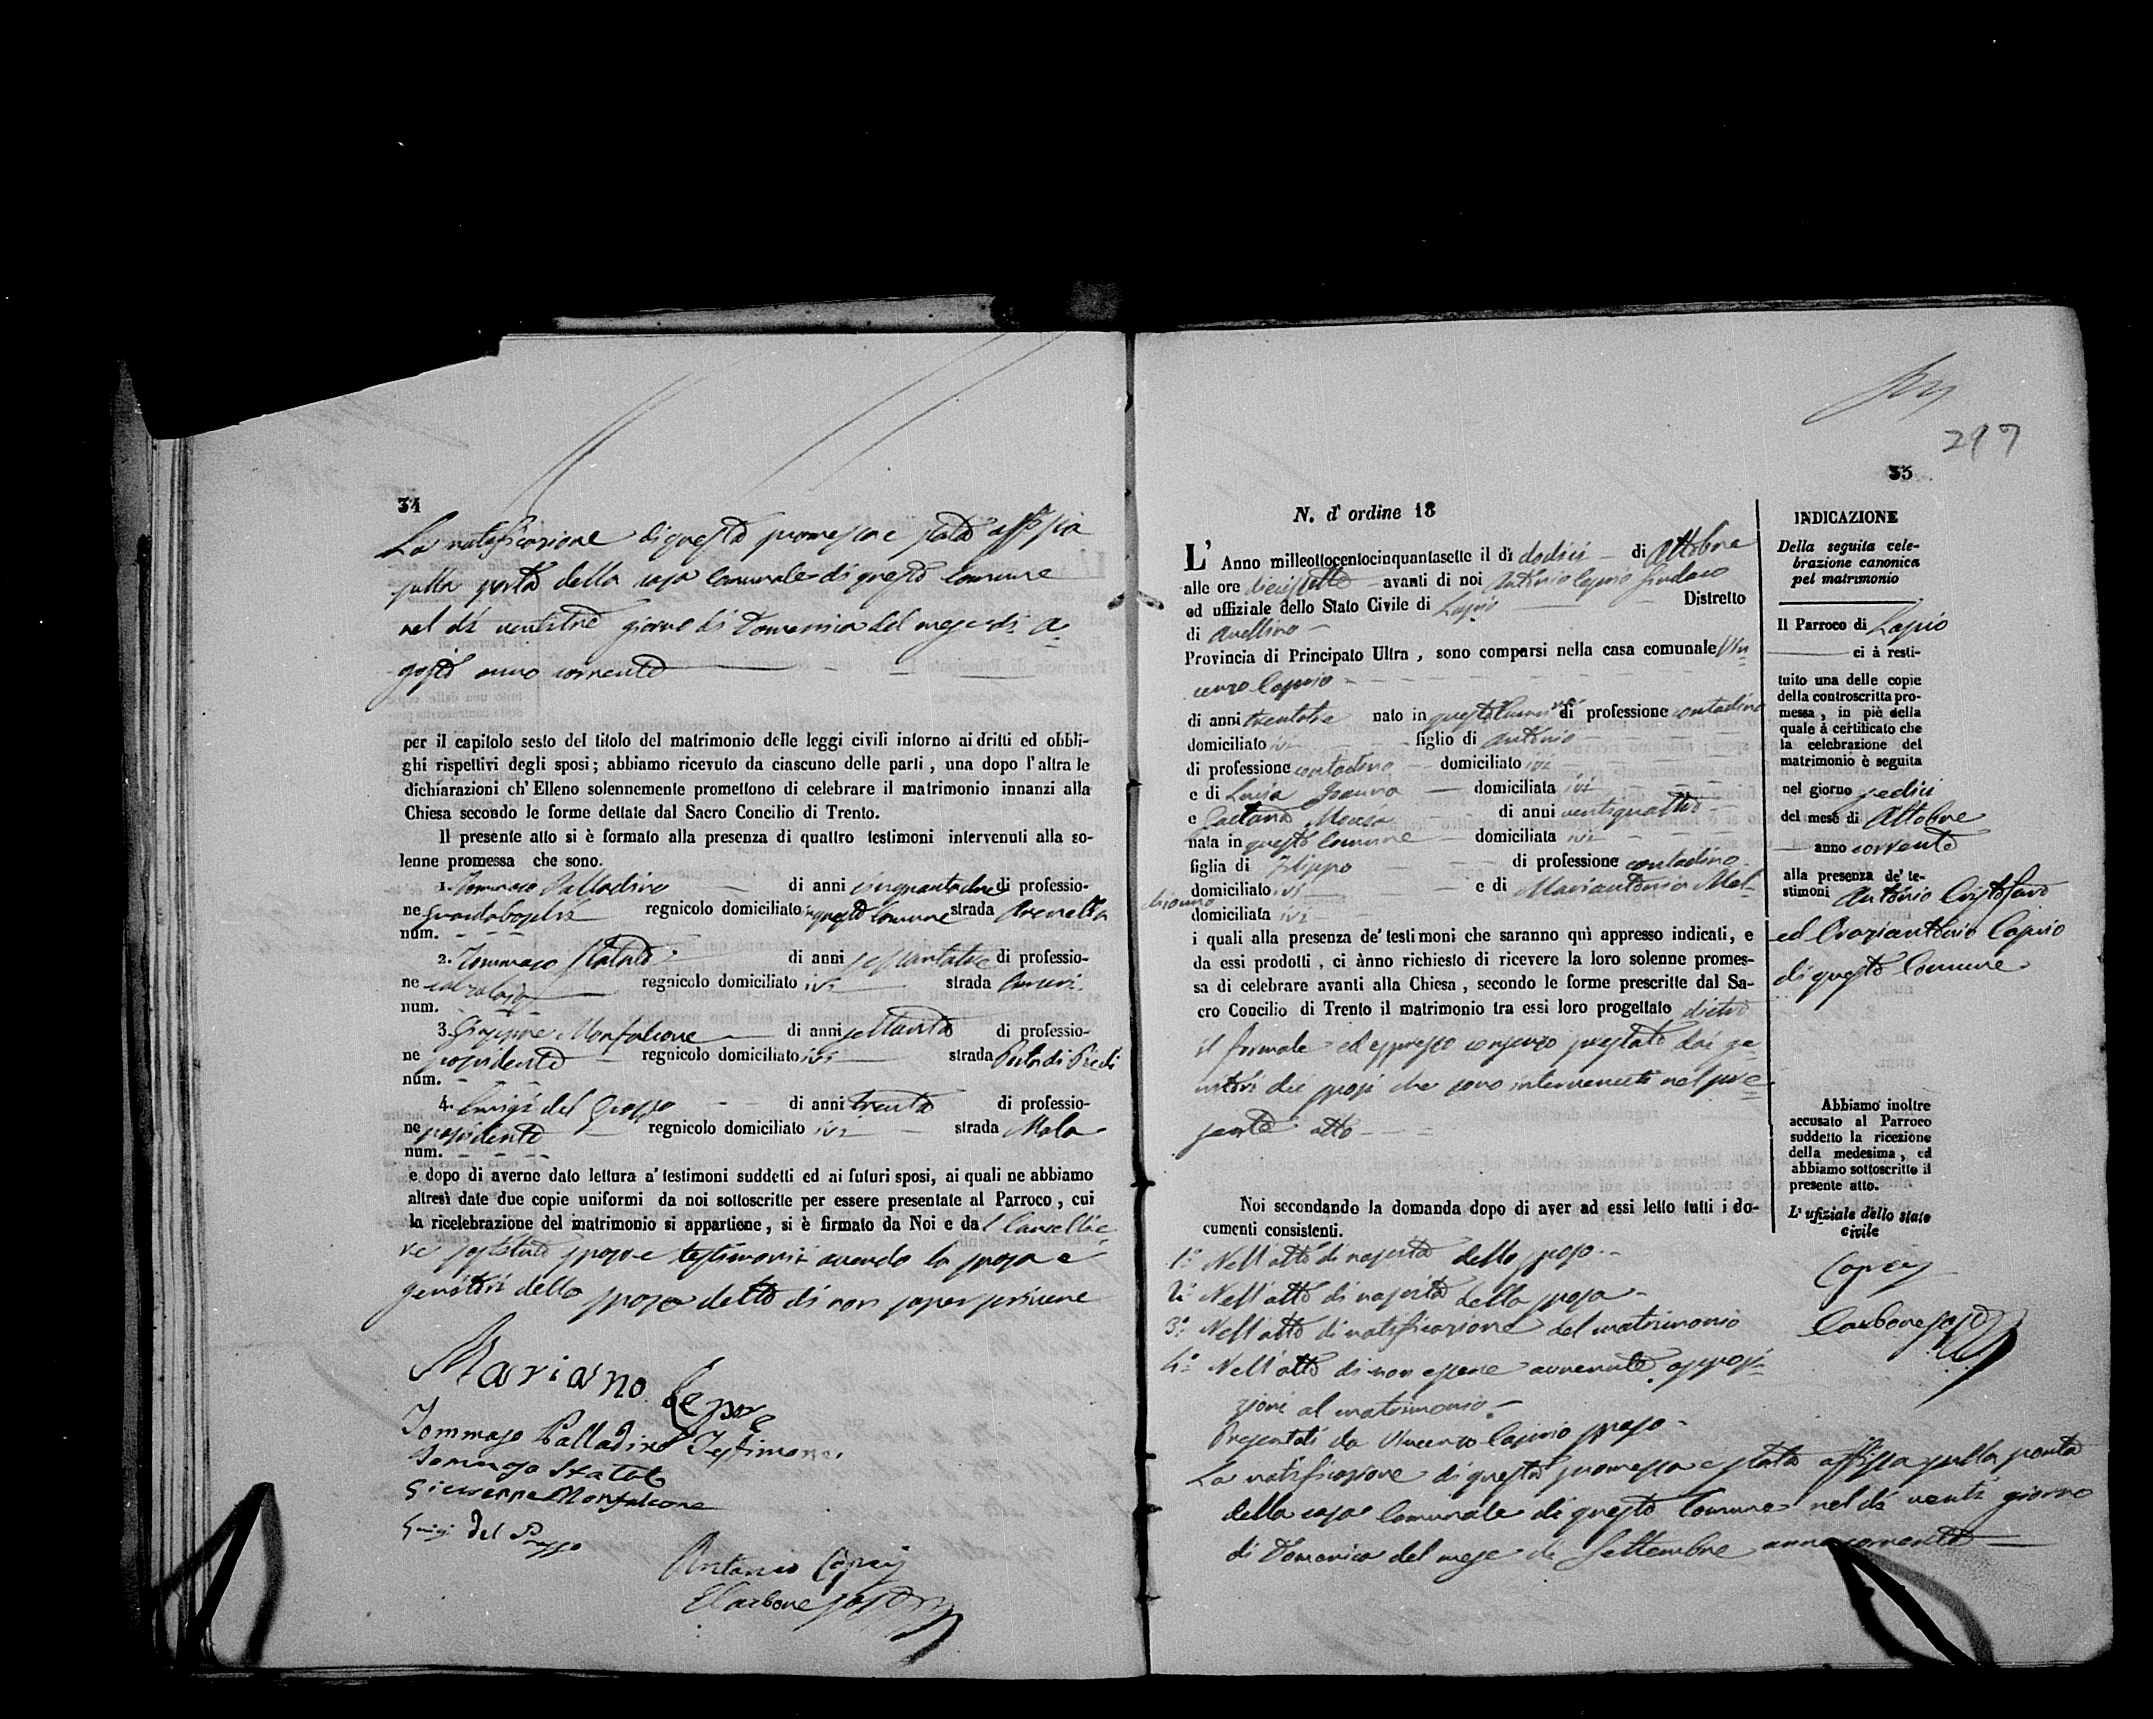 34
La notificazione di questa promessa è stata affissa
sulla porta della casa Comunale di questo Comune
nel dì ventitre giorno di Domenica del mese di A=
gosto anno corrente
per il capitolo sesto del titolo del matrimonio delle leggi civili intorno ai dritti ed obbli-
ghi rispettivi degli sposi; abbiamo ricevuto da ciascuno delle parti, una dopo l'altra le
dichiarazioni ch'Elleno solennemente promettono di celebrare il matrimonio innanzi alla
Chiesa secondo le forme dettate dal Sacro Concilio di Trento.
Il presente atto si è formato alla presenza di quattro testimoni intervenuti alla so-
lenne promessa che sono.
1. Tommaso Palladino di anni cinquantadue di professio-
ne Guardaboschi regnicolo domiciliato in questo Comune strada Arenella
num.
2. Tommaso Statuto di anni sessantatre di professio-
ne calzolajo regnicolo domiciliato ivi strada
num.
3. Giuseppe Monfalcone di anni settanta di professio-
ne possidente regnicolo domiciliato ivi strada Porta di Piedi
num.
4. Luigi del Grosso di anni trenta di professio-
ne possidente regnicolo domiciliato ivi strada Mola
num.
e dopo di averne dato lettura a' testimoni suddetti ed ai futuri sposi, ai quali ne abbiamo
altresì date due copie uniformi da noi sottoscritte per essere presentate al Parroco, cui
la ricelebrazione del matrimonio si appartiene, si è firmato da Noi e dal Cancellie=
re sostituto sposo e testimonii avendo la sposa e
genitori dello sposo detto di non saper scrivere
Mariano Lepore
Tommaso Palladino Testimone
Tommaso Statuto
Giuseppe Monfalcone
Luigi Del Grosso
Antonio Caprio
Carbone sosto
297
35
N. d'ordine 18
L'Anno milleottocentocinquantasette il dì dodici di Ottobre
alle ore diecisette avanti di noi Antonio Caprio Sindaco
ed uffiziale dello Stato Civile di Lapio Distretto
di Avellino
Provincia di Principato Ultra, sono comparsi nella casa comunale Vin=
cenzo Caprio
di anni trentatre nato in questo Comune di professione contadino
domiciliato ivi figlio di Antonio
di professione contadino domiciliato ivi
e di Lucia domiciliata ivi
e Gaetana di anni ventiquattro
nata in questo Comune domiciliata ivi
figlia di Filippo di professione contadino
domiciliato ivi e di Mariantonia
domiciliata ivi
i quali alla presenza de' testimoni che saranno quì appresso indicati, e
da essi prodotti, ci ànno richiesto di ricevere la loro solenne promes-
sa di celebrare avanti alla Chiesa, secondo le forme prescritte dal Sa-
cro Concilio di Trento il matrimonio tra essi loro progettato dietro
il formale ed espresso consenso prestato dai ge=
nitori dei sposi che sono intervenuti nel pre=
sente atto
Noi secondando la domanda dopo di aver ad essi letto tutti i do-
cumenti consistenti.
1º Nell'atto di nascita dello sposo
2º Nell'atto di nascita della sposa
3º Nell'atto di notificazione del matrimonio
4º Nell'atto di non essere avvenute opposi=
zioni al matrimonio
Presentati da Vincenzo Caprio sposo
La notificazione di questa promessa è stata affissa sulla porta
della casa Comunale di questo Comune nel dì venti giorno
di Domenica del mese di Settembre anno corrente
INDICAZIONE
Della seguita cele-
brazione canonica
pel matrimonio
Il Parroco di Lapio
ci à resti-
tuito una delle copie
della controscritta pro-
messa, in piè della
quale à certificato che
la celebrazione del
matrimonio è seguita
nel giorno sedici
del mese di Ottobre
anno corrente
alla presenza de' te-
stimoni Antonio Cristofano
ed Oraziantonio Caprio
di questo Comune
Abbiamo inoltre
accusato al Parroco
suddetto la ricezione
della medesima, ed
abbiamo sottoscritto il
presente atto.
L'ufiziale dello stato
civile
Caprio
Carbone sosto